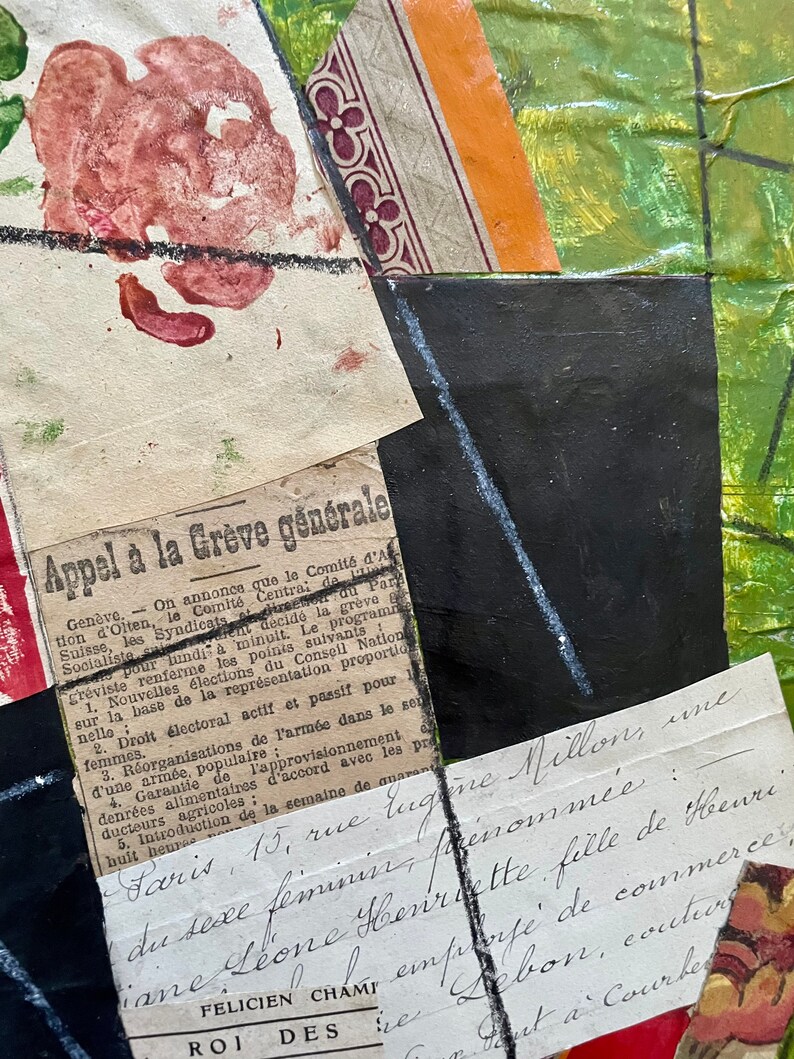 Appel à la Grève générale
Genève. — On annonce que le Comité d'A
tion d'Olten, le Comité Central de l'U
Suisse, les Syndicats et direction du Par
Socialiste suisse décidé la grève
pour lundi à minuit. Le programme
gréviste renferme les points suivants :
1. Nouvelles élections du Conseil Nation
sur la base de la représentation proportio
nelle ;
2. Droit électoral actif et passif pour l
femmes.
3. Réorganisations de l'armée dans le sen
d'une armée populaire ;
4. Garantie de l'approvisionnement
denrées alimentaires d'accord avec les pr
ducteurs agricoles ;
5. Introduction de la semaine de quaran
huit heures
Paris, 15, rue Eugène Millon, une
du sexe féminin, prénommée : —
iane Léone Henriette fille de Henri
employé de commerce,
re Lebon, coutur
à Courbe
FELICIEN CHAM
ROI DES